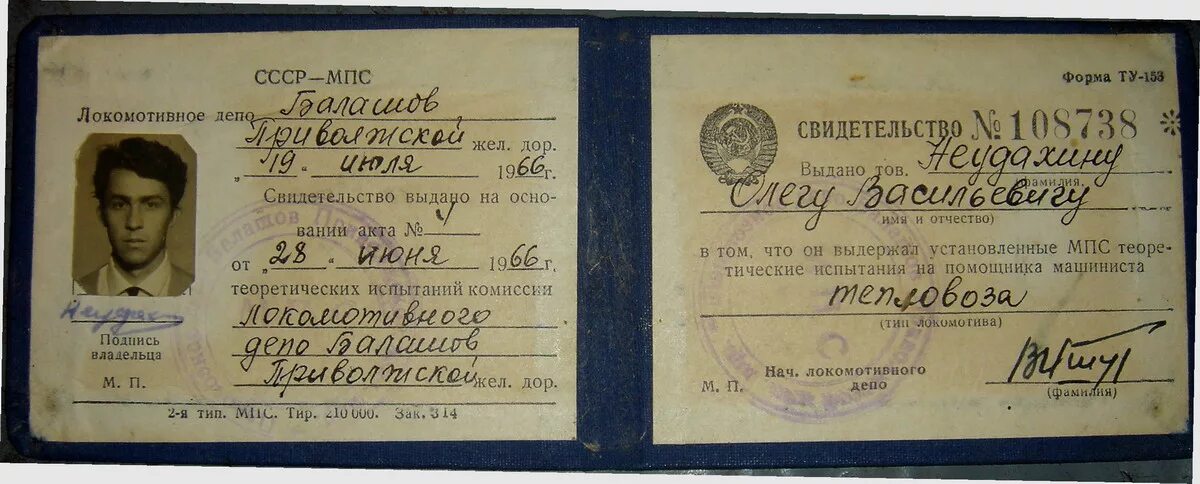 СССР—МПС
Локомотивное депо Балашов
Приволжской жел. дор.
„19 " июля 1966 г.
Свидетельство выдано на осно-
вании акта № 4
от „28 " июня 1966 г.
теоретических испытаний комиссии
Локомотивного
депо Балашов
Приволжской жел. дор.
Подпись
владельца
М. П.
2-я тип. МПС. Тир. 210 000. Зак. 314
Форма ТУ-153
СВИДЕТЕЛЬСТВО № 108738 *
Выдано тов. Неудахину
(фамилия,
Олегу Васильевичу
имя и отчество)
в том, что он выдержал установленные МПС теоре-
тические испытания на помощника машиниста
тепловоза
(тип локомотива)
Нач. локомотивного
депо
М. П.
(фамилия)